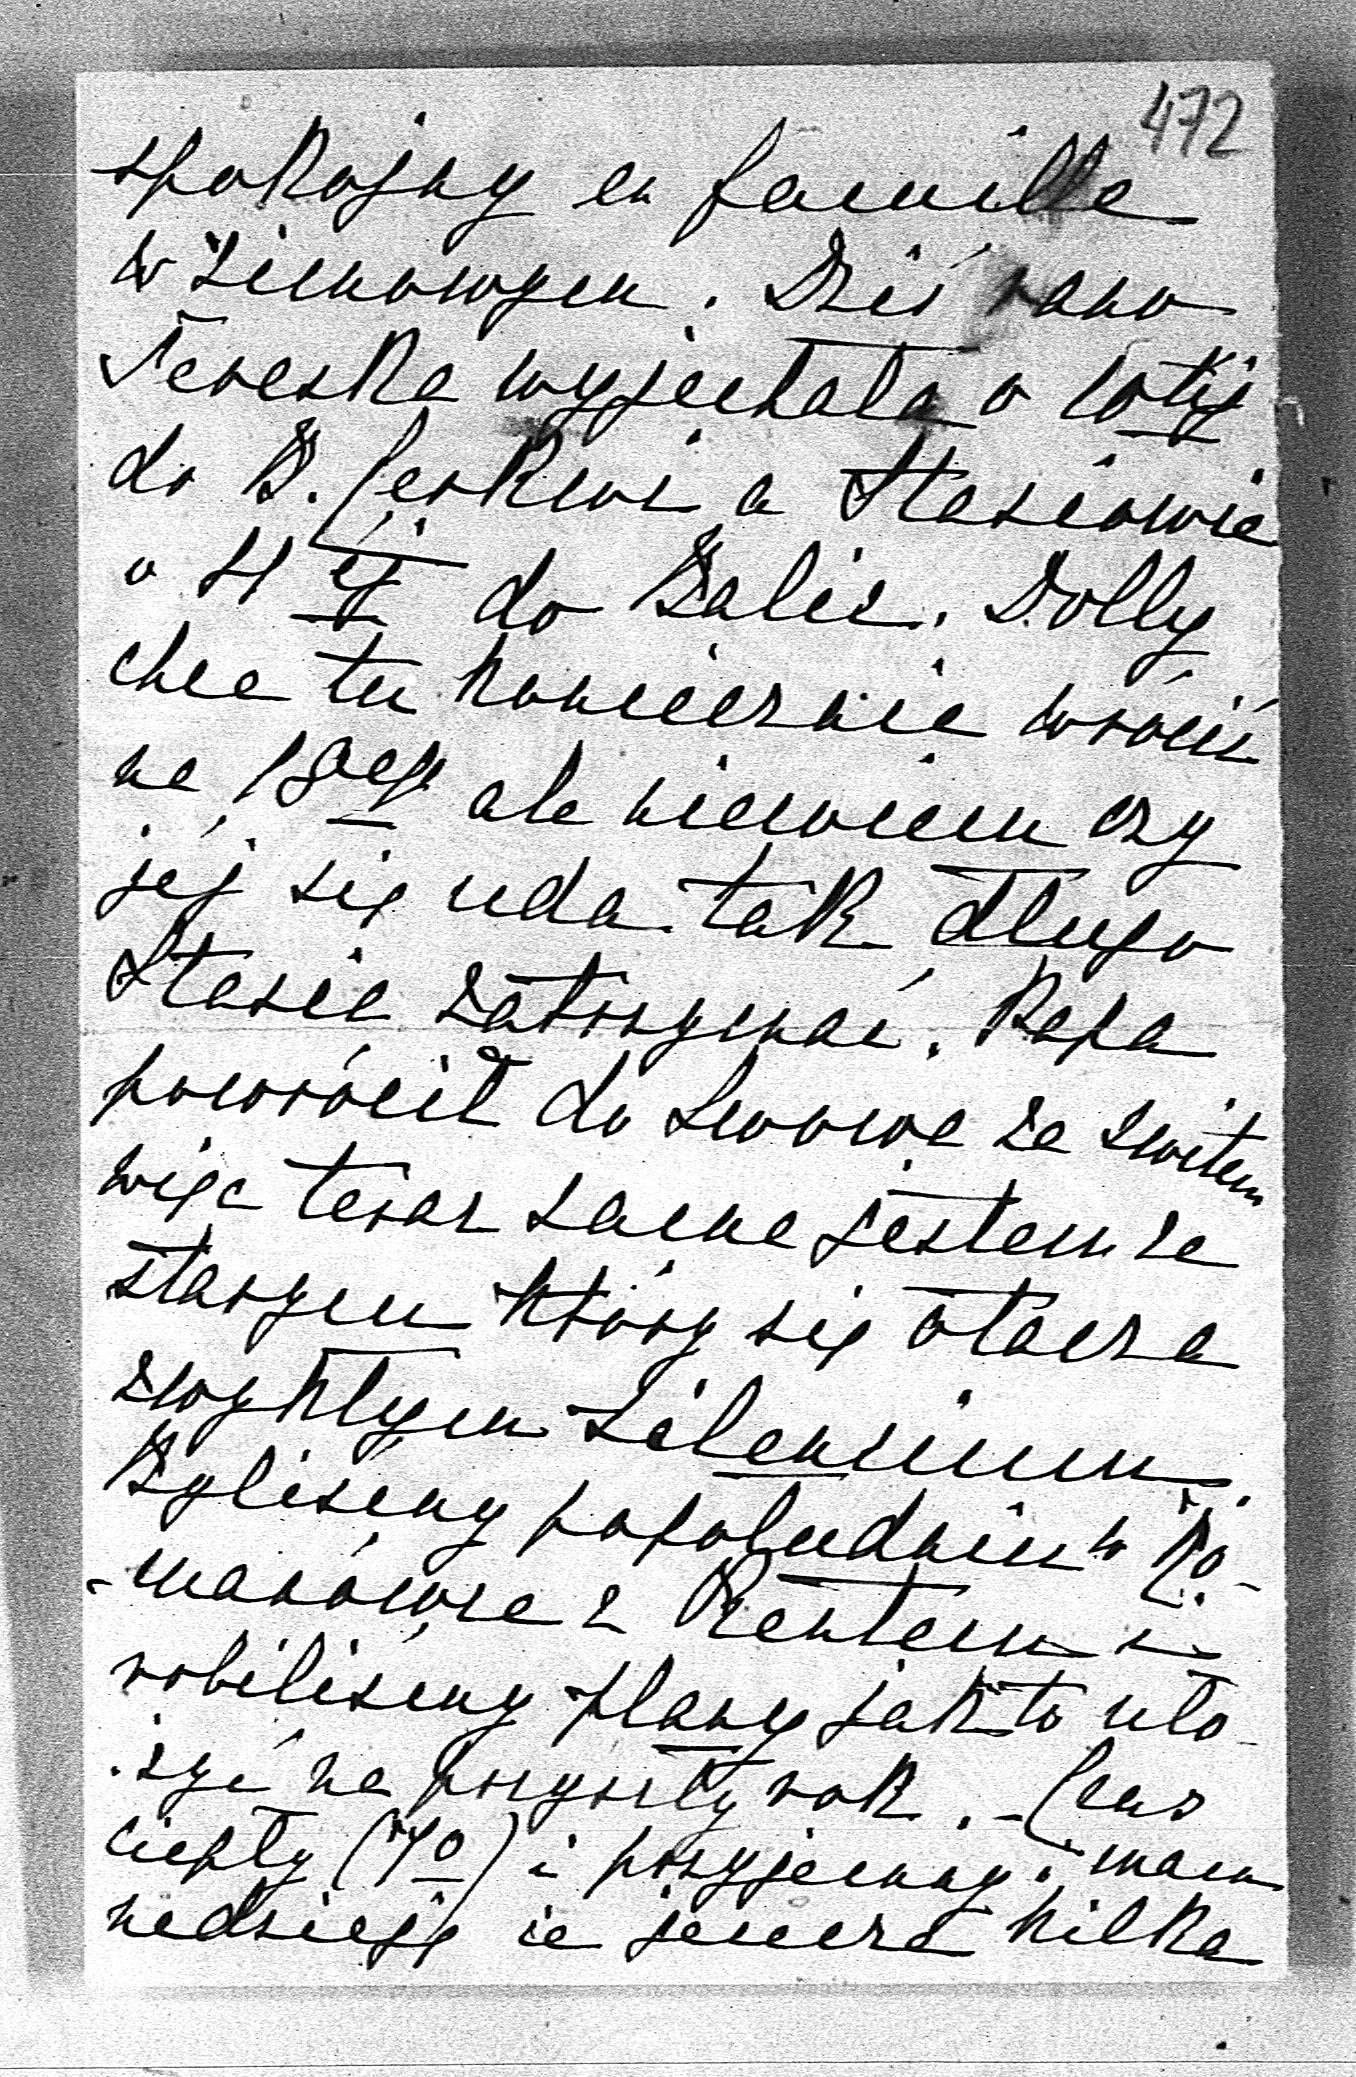 472
spokojny en famille
w zimowym. Dziś rano
Tereska wyjechała o 10téj
do B. Cerkwi a Stasiowie
o 4 éj do Balic. Dolly
chce tu koniecznie wrócić
na 18ego ale niewiem czy
jéj się uda tak długo
Stasia zatrzymać. Papa
powrócił do Lwowa ze świtem
więc teraz sama jestem ze
starym który się otacza
zwykłym silencium.
Byliśmy popołudniu w Ro-
-manówce z Rentem i
robiliśmy plany jak to uło
żyć na przyszły rok. - Czas
ciepły (4°) i przyjemny. mam
nadzieję że jeszcze kilka